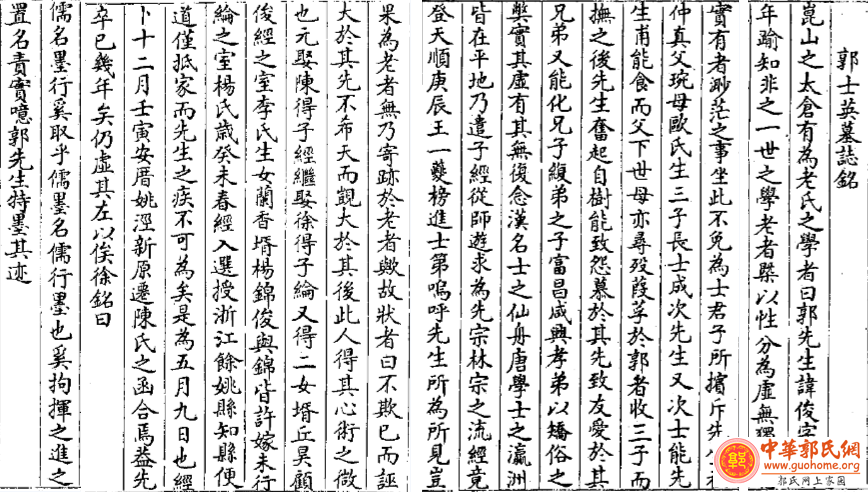 郭士英墓誌銘
崑山之太倉有為老氏之學者曰郭先生諱俊字
年踰知非之一世之學老者槩以性分為虛無
實有者渺茫之事坐此不免為士君子所擯斥先
仲真父琬母歐氏生三子長士成次先生又次士能先
生甫能食而父下世母亦尋歿葭莩於郭者收三子而
撫之後先生奮起自樹能致怨慕於其先致友愛於其
兄弟又能化兄子弟之子富昌咸興孝弟以矯俗之
獘實其虛有其無復念漢名士之仙舟唐學士之瀛洲
皆在平地乃遣子經從師遊求為先宗林宗之流經竟
登天順庚辰王一夔榜進士第嗚呼先生所為所見豈
果為老者無乃寄跡於老者歟故狀者曰不欺已而誣
大於其先不希天而觀大於其後此人得其心術之微
也元娶陳得子經繼娶徐得子綸又得二女壻丘昊顧
俊經之室李氏生女蘭香壻楊錦俊與錦皆許嫁未行
綸之室楊氏歲癸未春經入選授浙江餘姚縣知縣便
道僅抵家而先生之疾不可為矣是為五月九日也經
卜十二月壬寅安厝姚涇新原遷陳氏之函合焉益先
卒已幾年矣仍虛其左以俟徐銘曰
儒名墨行奚取乎儒墨名儒行墨也奚拘揮之進之
置名責實噫郭先生持墨其迹
中華郭氏網
www.guohome.org
郭氏网上家園